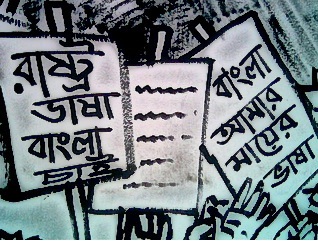 রাষ্ট্র
ভাষা
বাংলা
চাই
বাংলা
আমার
মায়ের
ভাষা